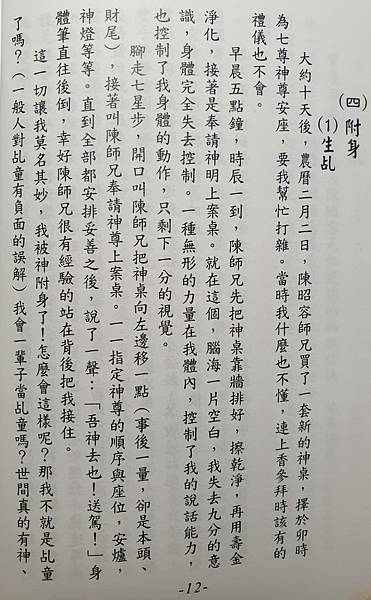 (四)附身
(1)生乩
大約十天後，農曆二月二日，陳昭容師兄買了一套新的神桌，擇於卯時
為七尊神尊安座，要我幫忙打雜。當時我什麼也不懂，連上香參拜時該有的
禮儀也不會。
早晨五點鐘，時辰一到，陳師兄先把神桌靠牆排好，擦乾淨，再用壽金
淨化，接著是奉請神明上案桌。就在這個，腦海一片空白，我失去九分的意
識，身體完全失去控制。一種無形的力量在我體內，控制了我的說話能力，
也控制了我身體的動作，只剩下一分的視覺。
腳走七星步，開口叫陳師兄把神桌向左邊移一點(事後一量，卻是本頭、
財尾)，接著叫陳師兄奉請神尊上案桌。一一指定神尊的順序與座位，安爐，
神燈等等。直到全部都安排妥善之後，說了一聲：「吾神去也！送駕！」身
體筆直往後倒，幸好陳師兄很有經驗的站在背後把我接住。
這一切讓我莫名其妙，我被神附身了！怎麼會這樣呢？那我不就是乩童
了嗎？(一般人對乩童有負面的誤解)我會一輩子當乩童嗎？世間真的有神、
-12-